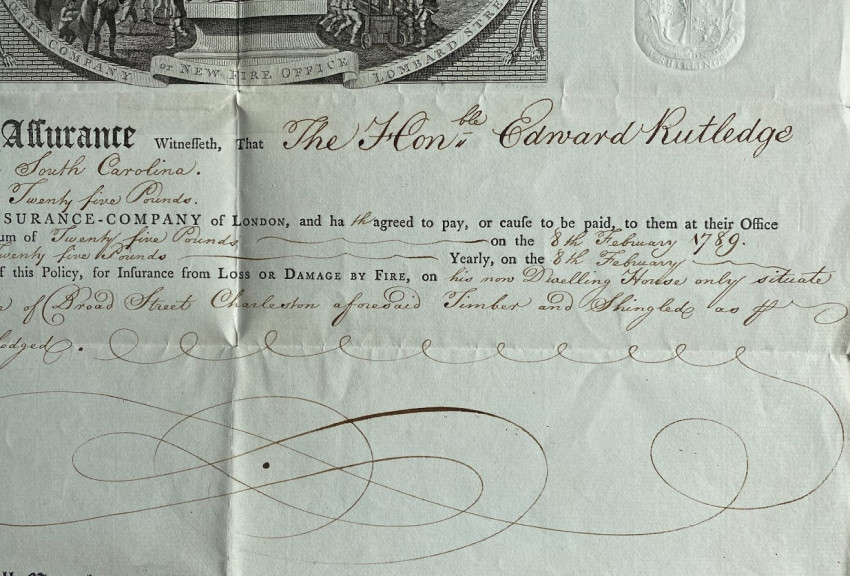 COMPANY or NEW FIRE OFFICE LOMBARD STRE
SHILLINGS
Aſſurance Witneſſeth, That The Honble Edward Rutledge
South Carolina.
Twenty five Pounds.
SURANCE-COMPANY of LONDON, and ha th agreed to pay, or cauſe to be paid, to them at their Office
um of Twenty five Pounds on the 8th February 1789.
wenty five Pounds Yearly, on the 8th February
f this Policy, for Inſurance from LOSS OR DAMAGE BY FIRE, on his now Dwelling House only situate
e of Broad Street Charleston aforesaid Timber and Shingled as
odged.